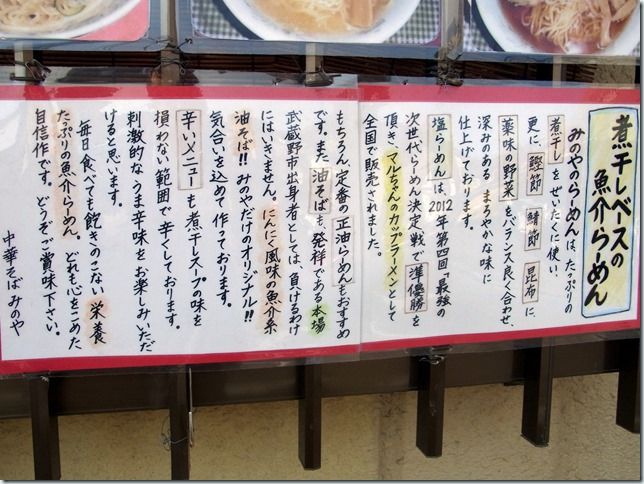 煮干しベースの
魚介らーめん
みのやのらーめんは、たっぷりの
煮干しをぜいたくに使い、
更に、鰹節 鯖節 昆布に、
薬味の野菜をバランス良く合わせ、
深みのある まろやかな味に
仕上げております。
塩らーめんは、2012年第四回「最強の
次世代らーめん決定戦で準優勝を
頂き、マルちゃんのカップラーメンとして
全国で販売されました。
もちろん定番の正油らーめんもおすすめ
です。また油そばも、発祥である本場
武蔵野市出身者としては、負けるわけ
にはいきません。にんにく風味の魚介系
油そば!!みのやだけのオリジナル!!
気合いを込めて作っております。
辛いメニューも煮干しスープの味を
損わない範囲で辛くしております。
刺激的なうま辛味をお楽しみいただ
けると思います。
毎日食べても飽きのこない 栄養
たっぷりの魚介らーめん。どれも心をこめた
自信作です。どうぞご賞味下さい。
中華そばみのや